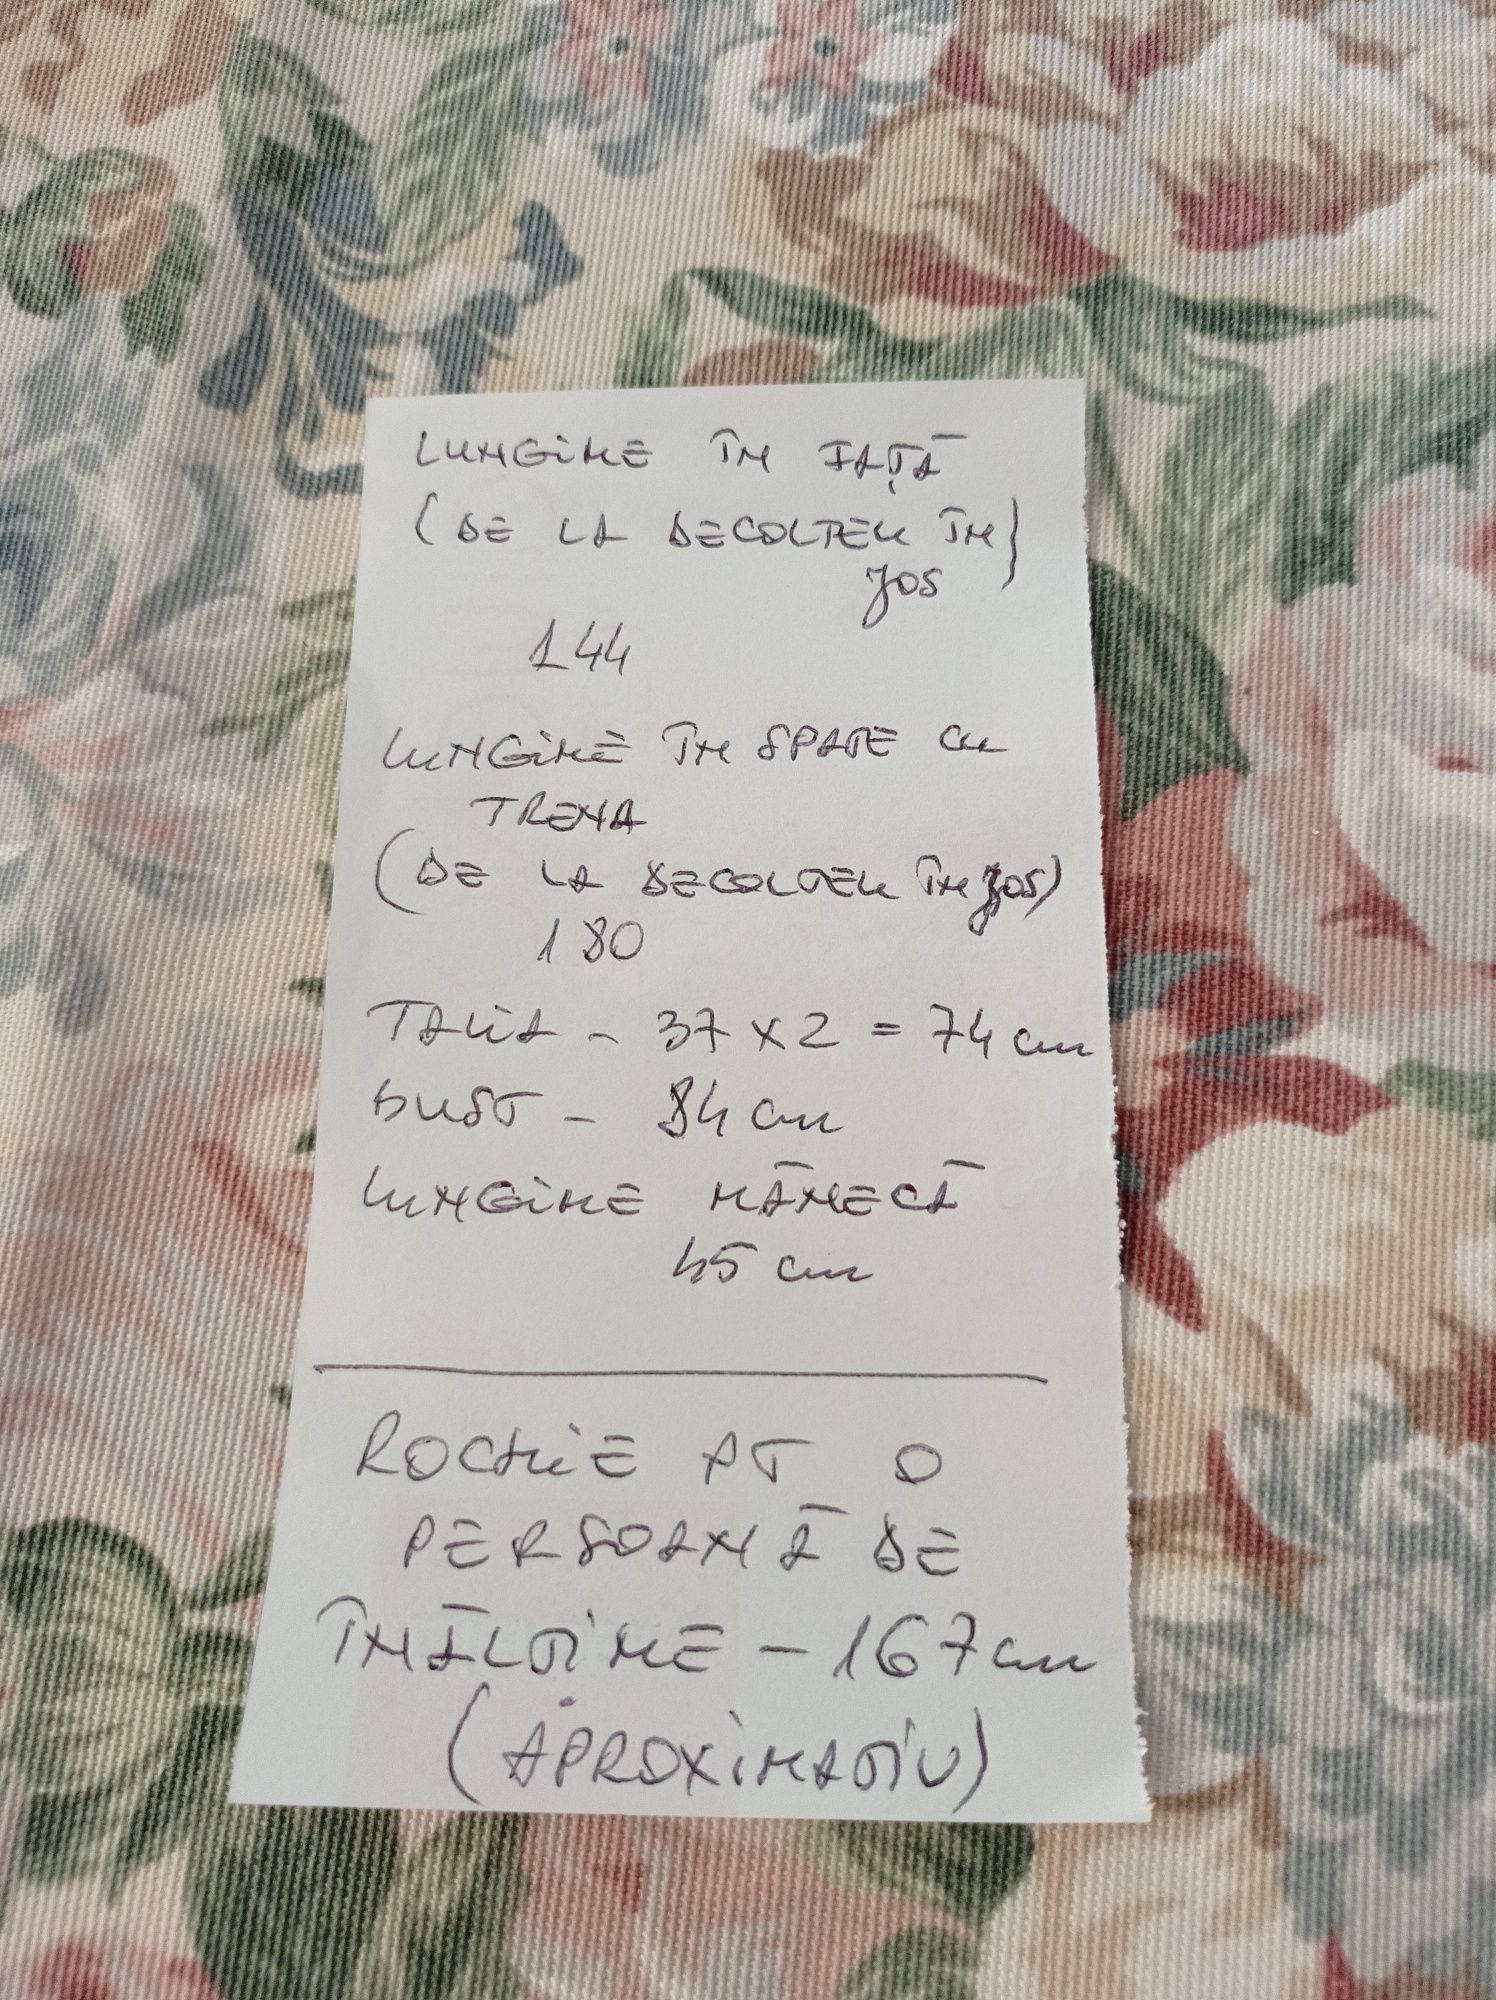 LUNGIME ÎN FAȚĂ
(DE LA DECOLTEU ÎN
JOS)
144
LUNGIME ÎN SPATE CU
TRENA
(DE LA DECOLTEU ÎN JOS)
180
TALIA - 37 x 2 = 74 cm
BUST - 84 cm
LUNGIME MÂNECĂ
45 cm
ROCHIE PT O
PERSOANĂ DE
ÎNĂLȚIME - 167 cm
(APROXIMATIV)